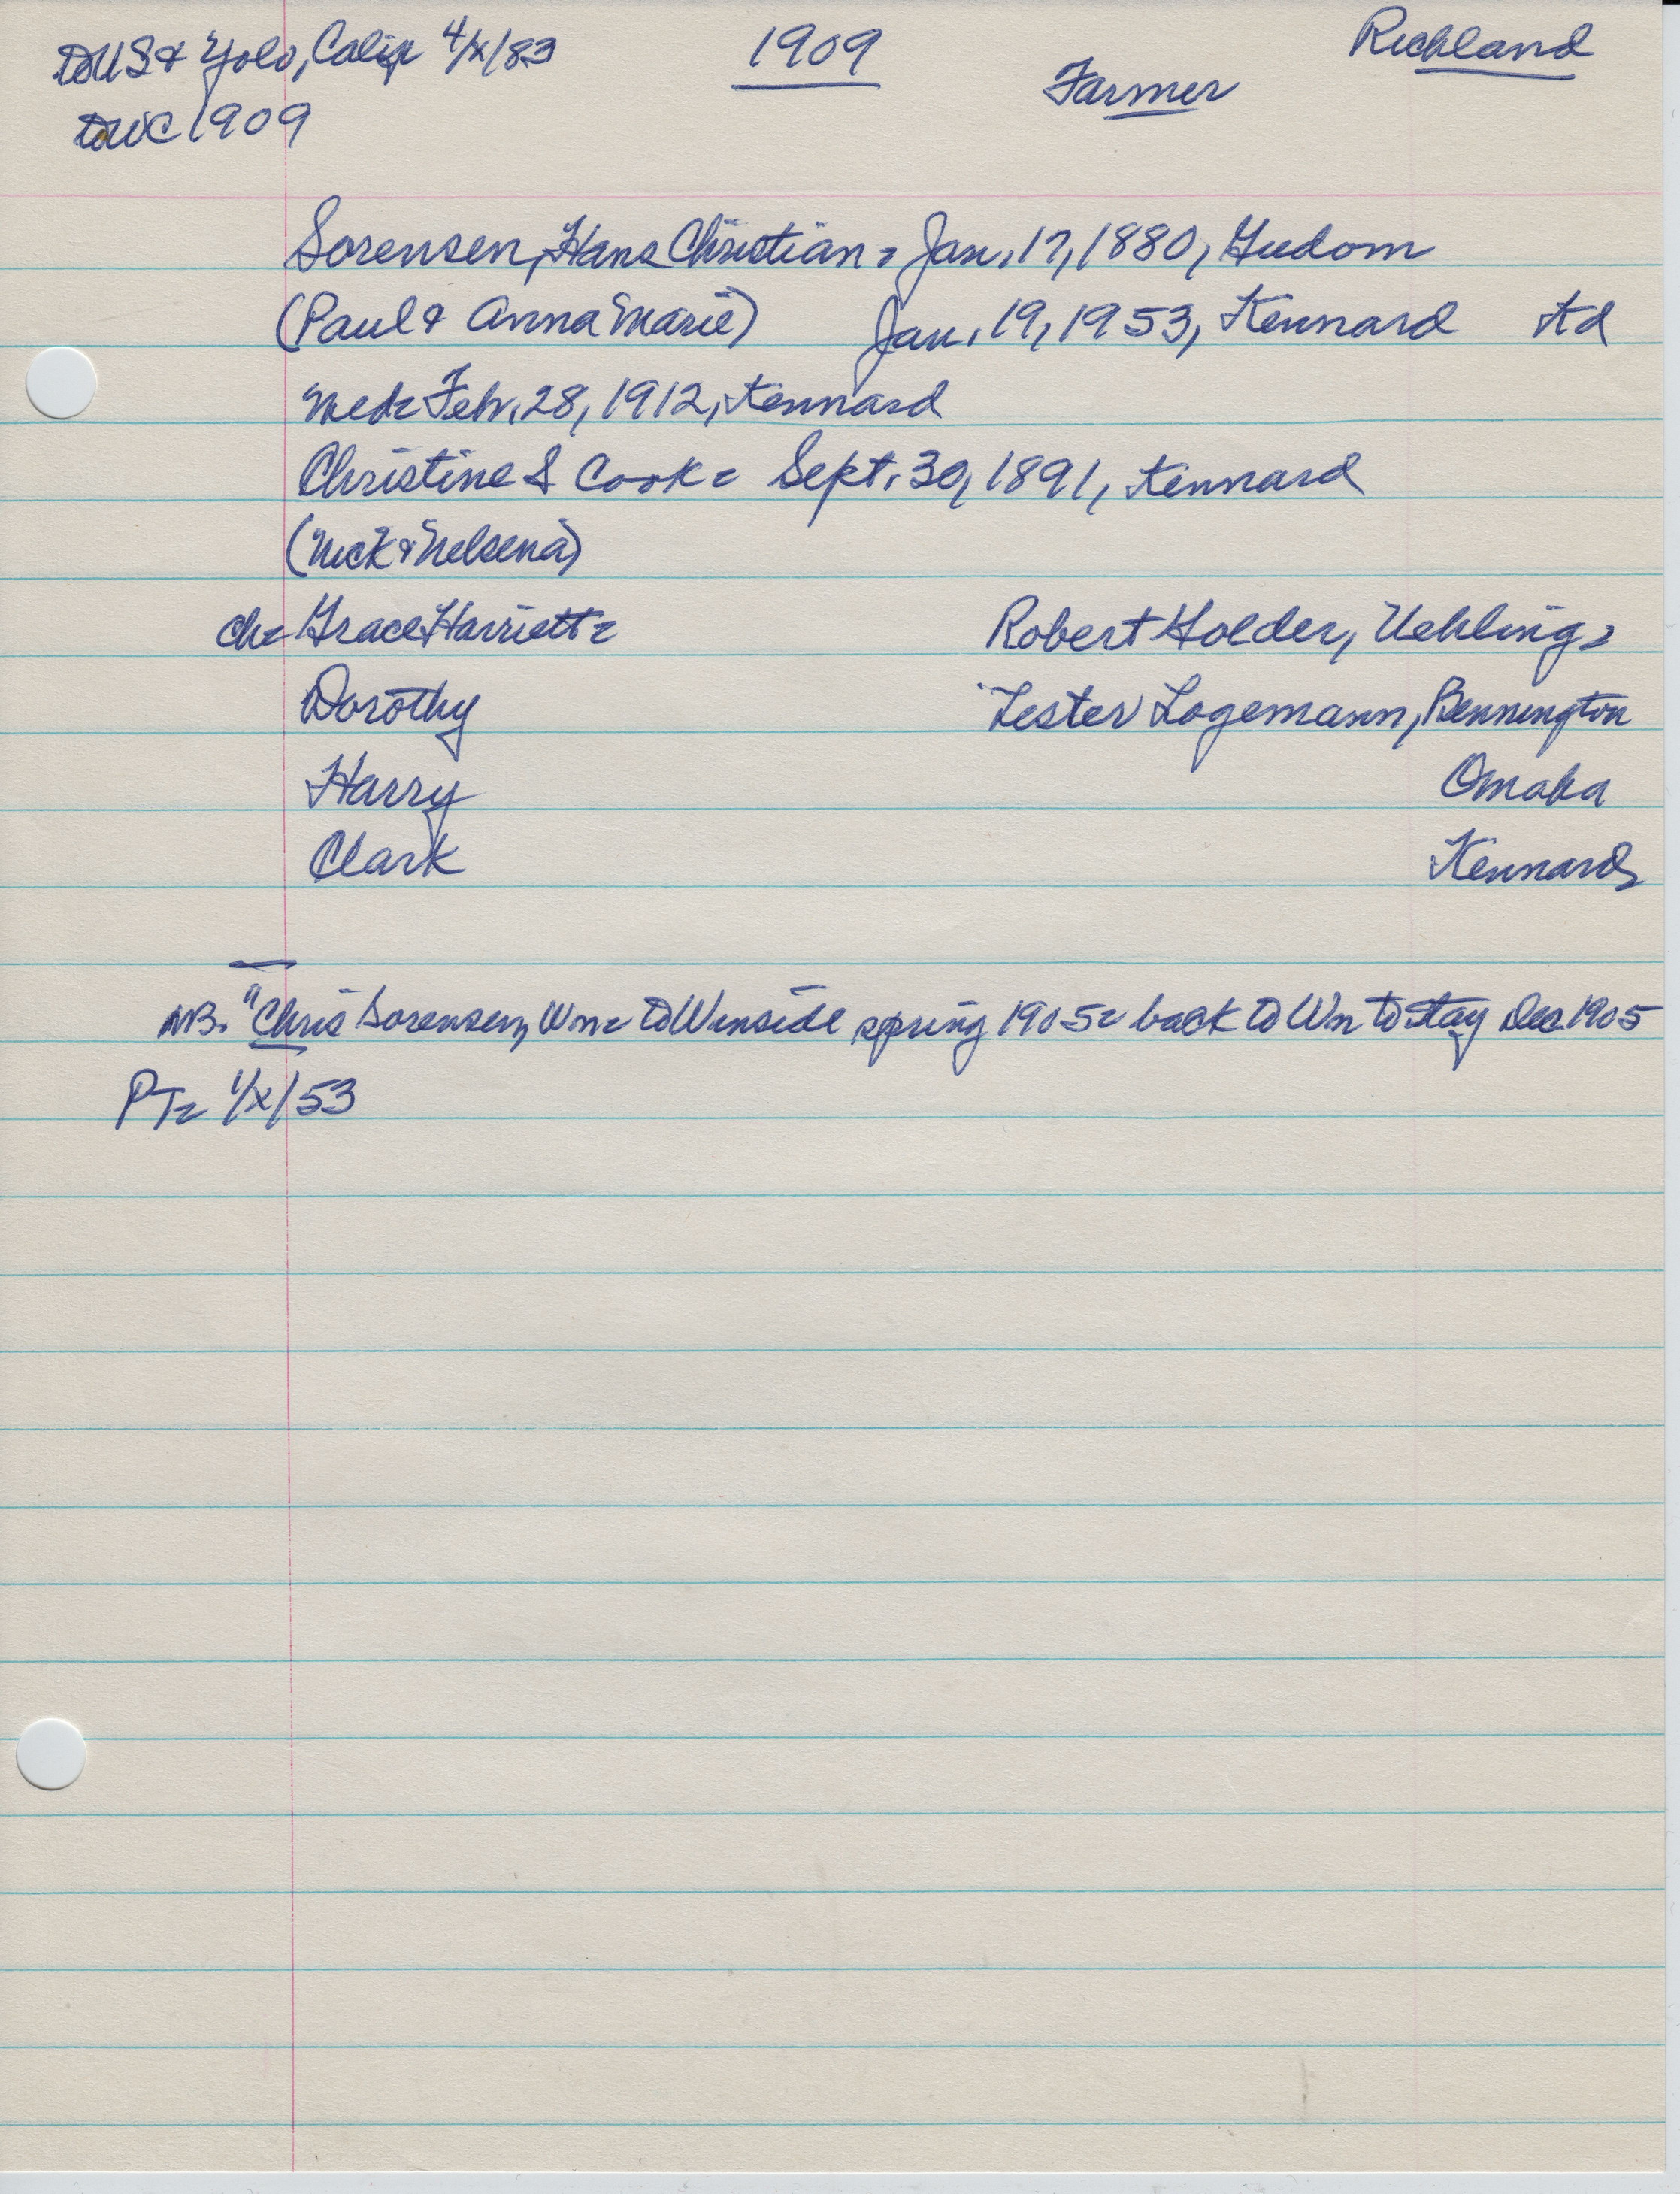 to US & Yolo, Calif 4/x/83 1909 Farmer Richland
to WC 1909
Sorensen, Hans Christian = Jan. 17, 1880, Gudom
(Paul & Anna Marie) Jan. 19, 1953, Kennard Kd
Med= Feb. 28, 1912, Kennard
Christine S Cook = Sept. 30, 1891, Kennard
(Nick & Nelsena)
ch= Grace Harriett = Robert Holder, Uehling =
Dorothy Lester Logemann, Bennington
Harry Omaha
Clark Kennard
NB. "Chris" Sorensen, Wn= to Winside spring 1905= back to Wn to stay Dec 1905
PT= 1/x/53